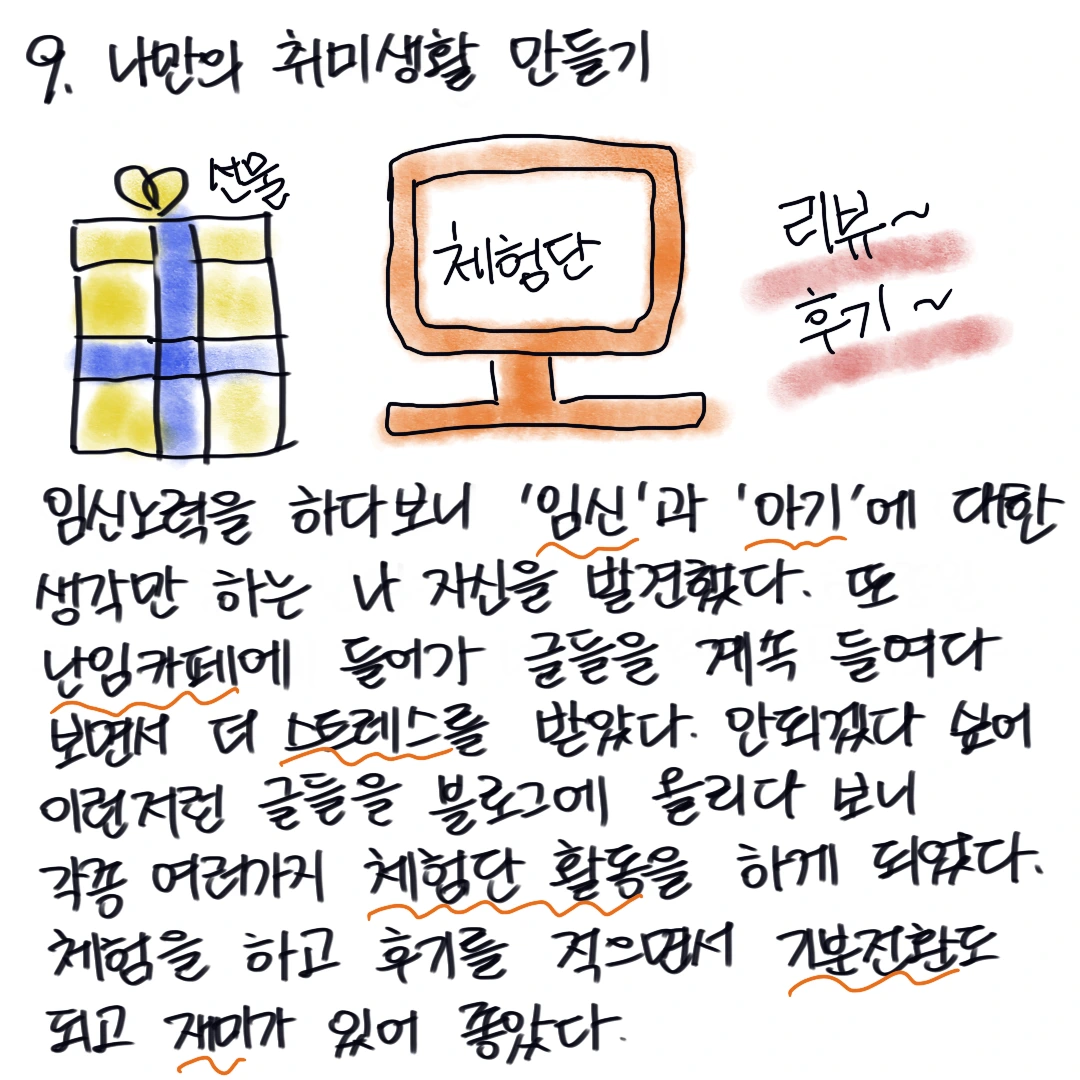 9. 나만의 취미생활 만들기
선물
체험단
리뷰~
후기~
임신노력을 하다보니 '임신'과 '아기'에 대한
생각만 하는 나 자신을 발견했다. 또
난임카페에 들어가 글들을 계속 들여다
보면서 더 스트레스를 받았다. 안되겠다 싶어
이런저런 글들을 블로그에 올리다 보니
각종 여러가지 체험단 활동을 하게 되었다.
체험을 하고 후기를 적으면서 기분전환도
되고 재미가 있어 좋았다.